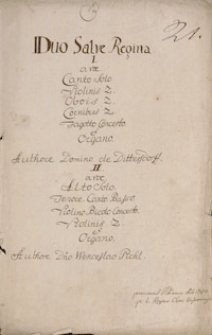 21.
Duo Salve Regina
I
a voce
Canto Solo
Violinis 2.
Obois 2.
Cornibus 2.
Fagotto Concerto
et
Organo.
Authore Domino de Dittersdorff.
II
a voce
Alto Solo
Tenore. Canto. Basso
Violino Concerto
Violinis 2.
et
Organo.
Authore Dno Wenceslao Pichl.